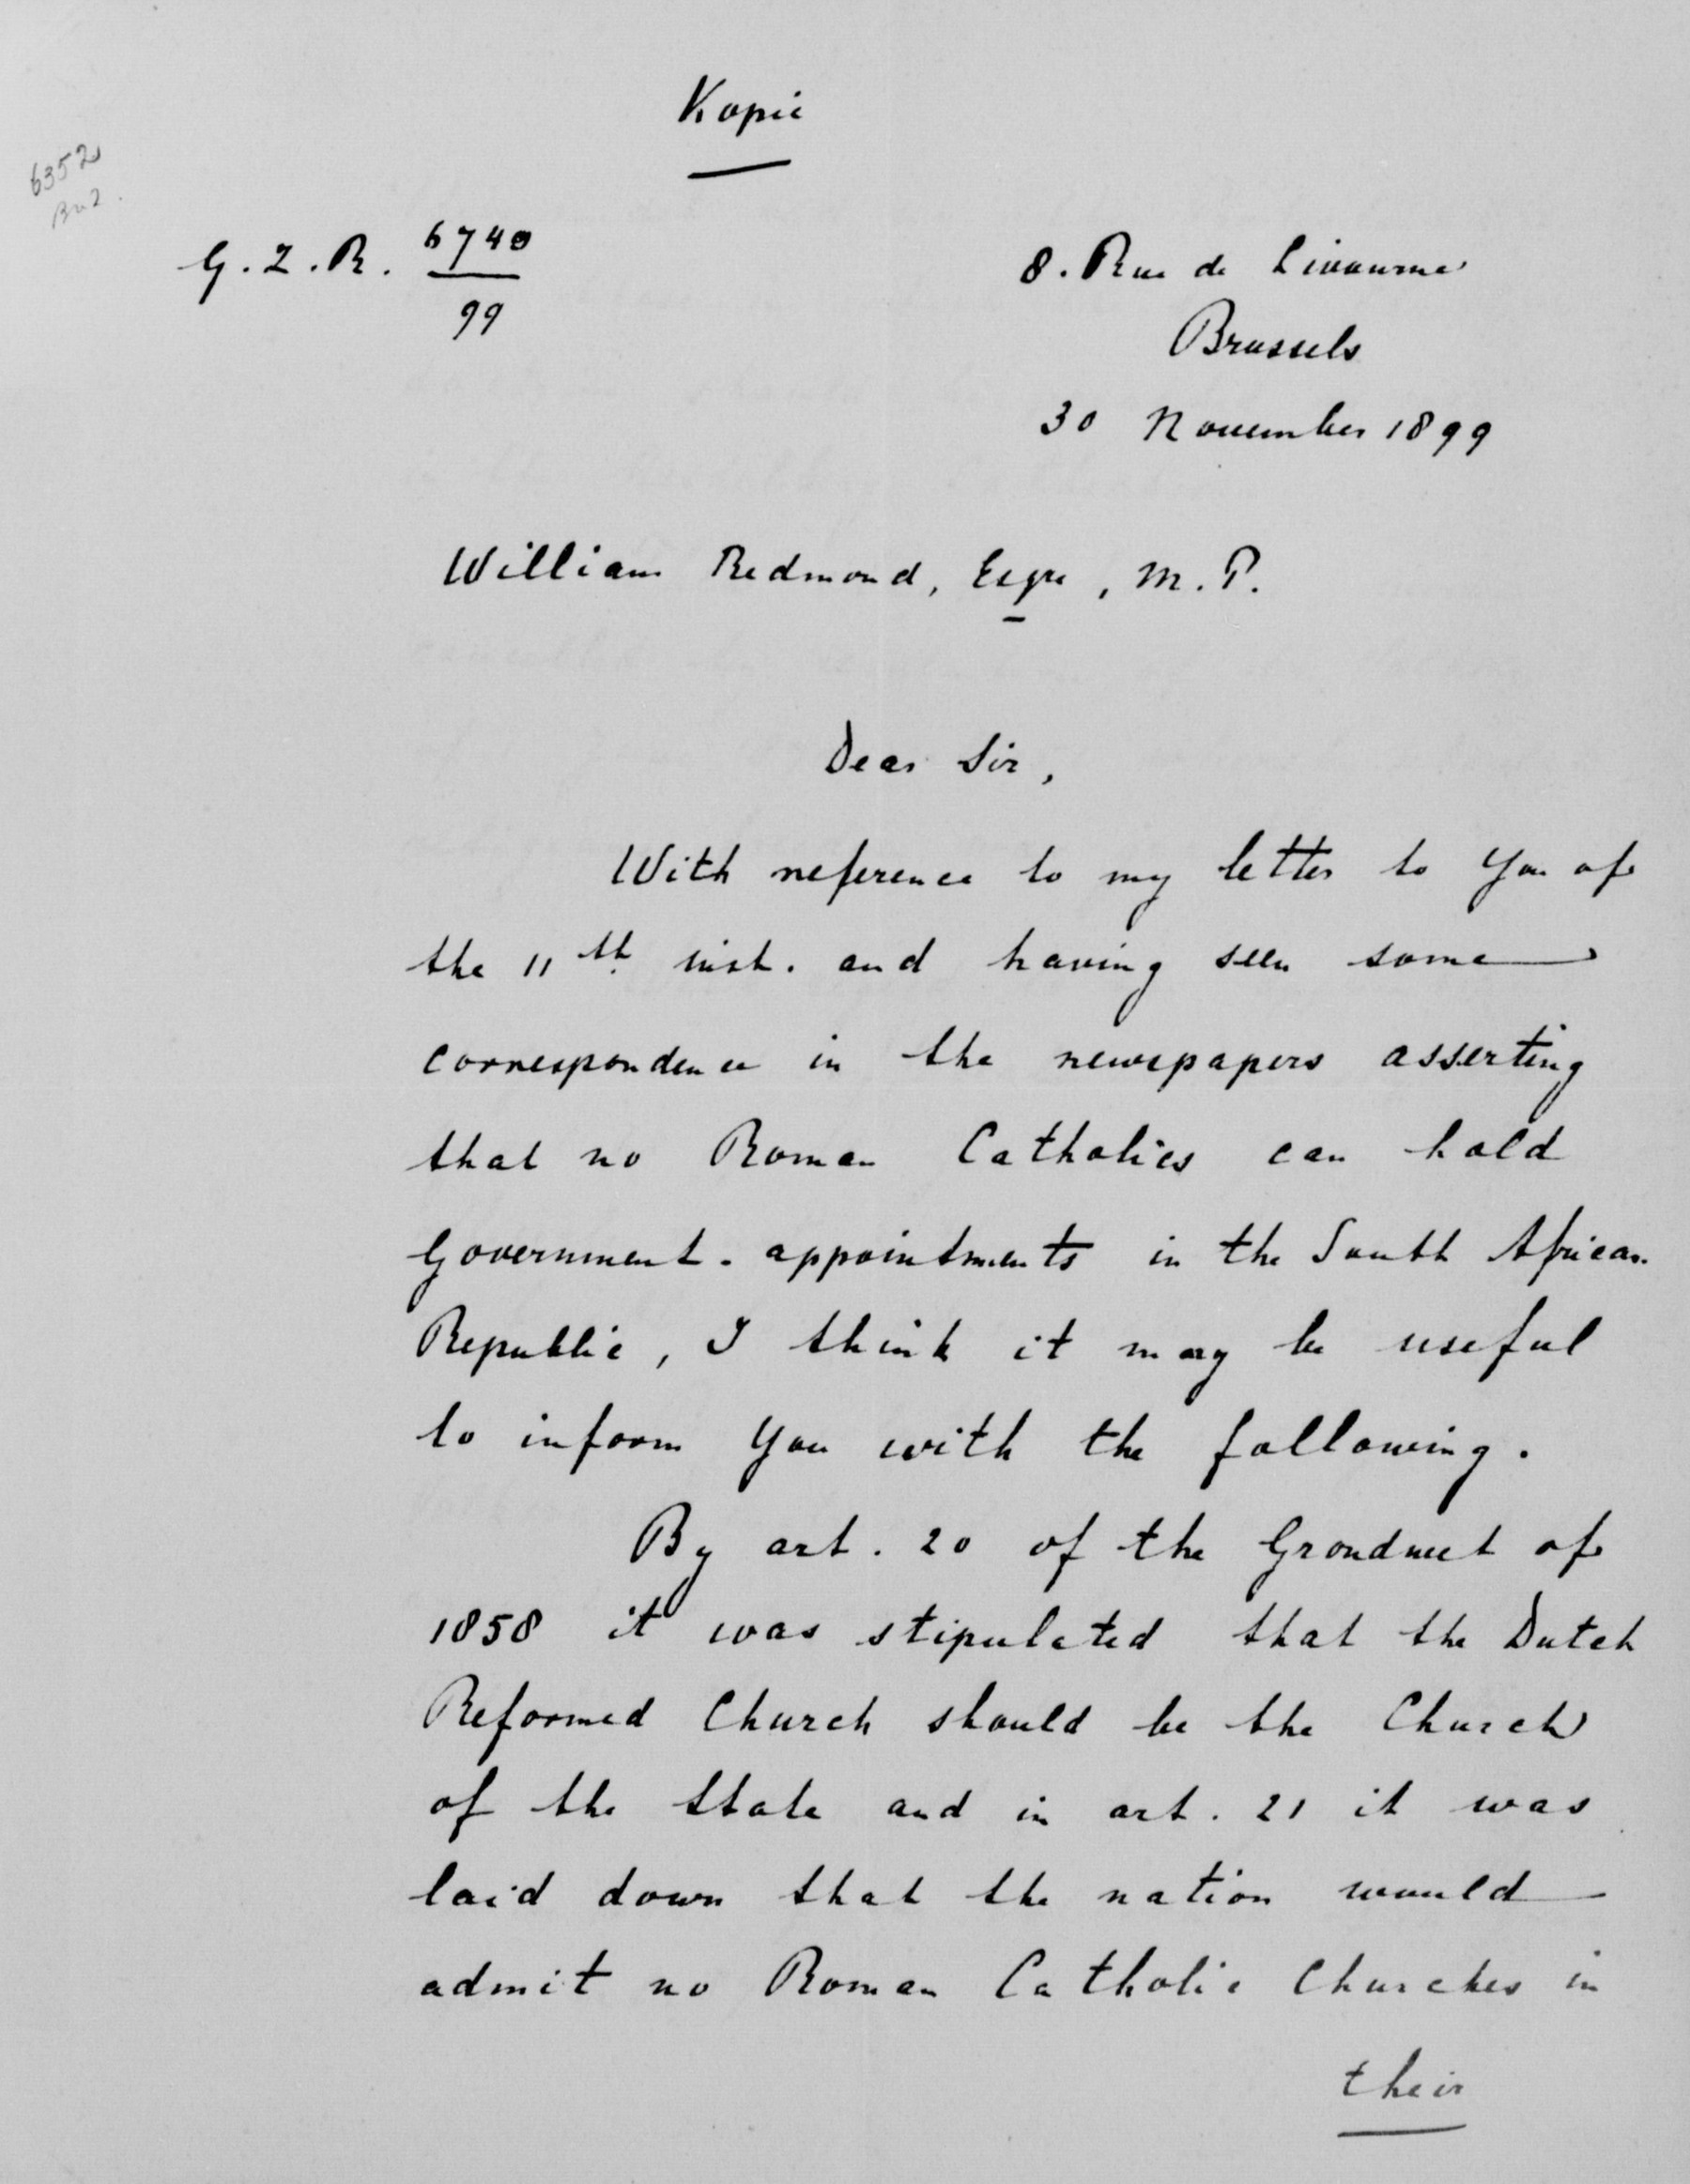 Kopie
G.Z.R. 6740
99
8. Rue de Livourne
Brussels
30 November 1899
William Redmond, Esqre, M.P.
Dear Sir,
With reference to my letter to You of
the 11th inst. and having seen some
correspondence in the newspapers asserting
that no Roman Catholics can hold
Government-appointments in the South African
Republic, I think it may be useful
to inform You with the following.
By art. 20 of the Grondwet of
1858 it was stipulated that the Dutch
Reformed Church should be the Church
of the State and in art. 21 it was
laid down that the nation would
admit no Roman Catholic Churches in
their